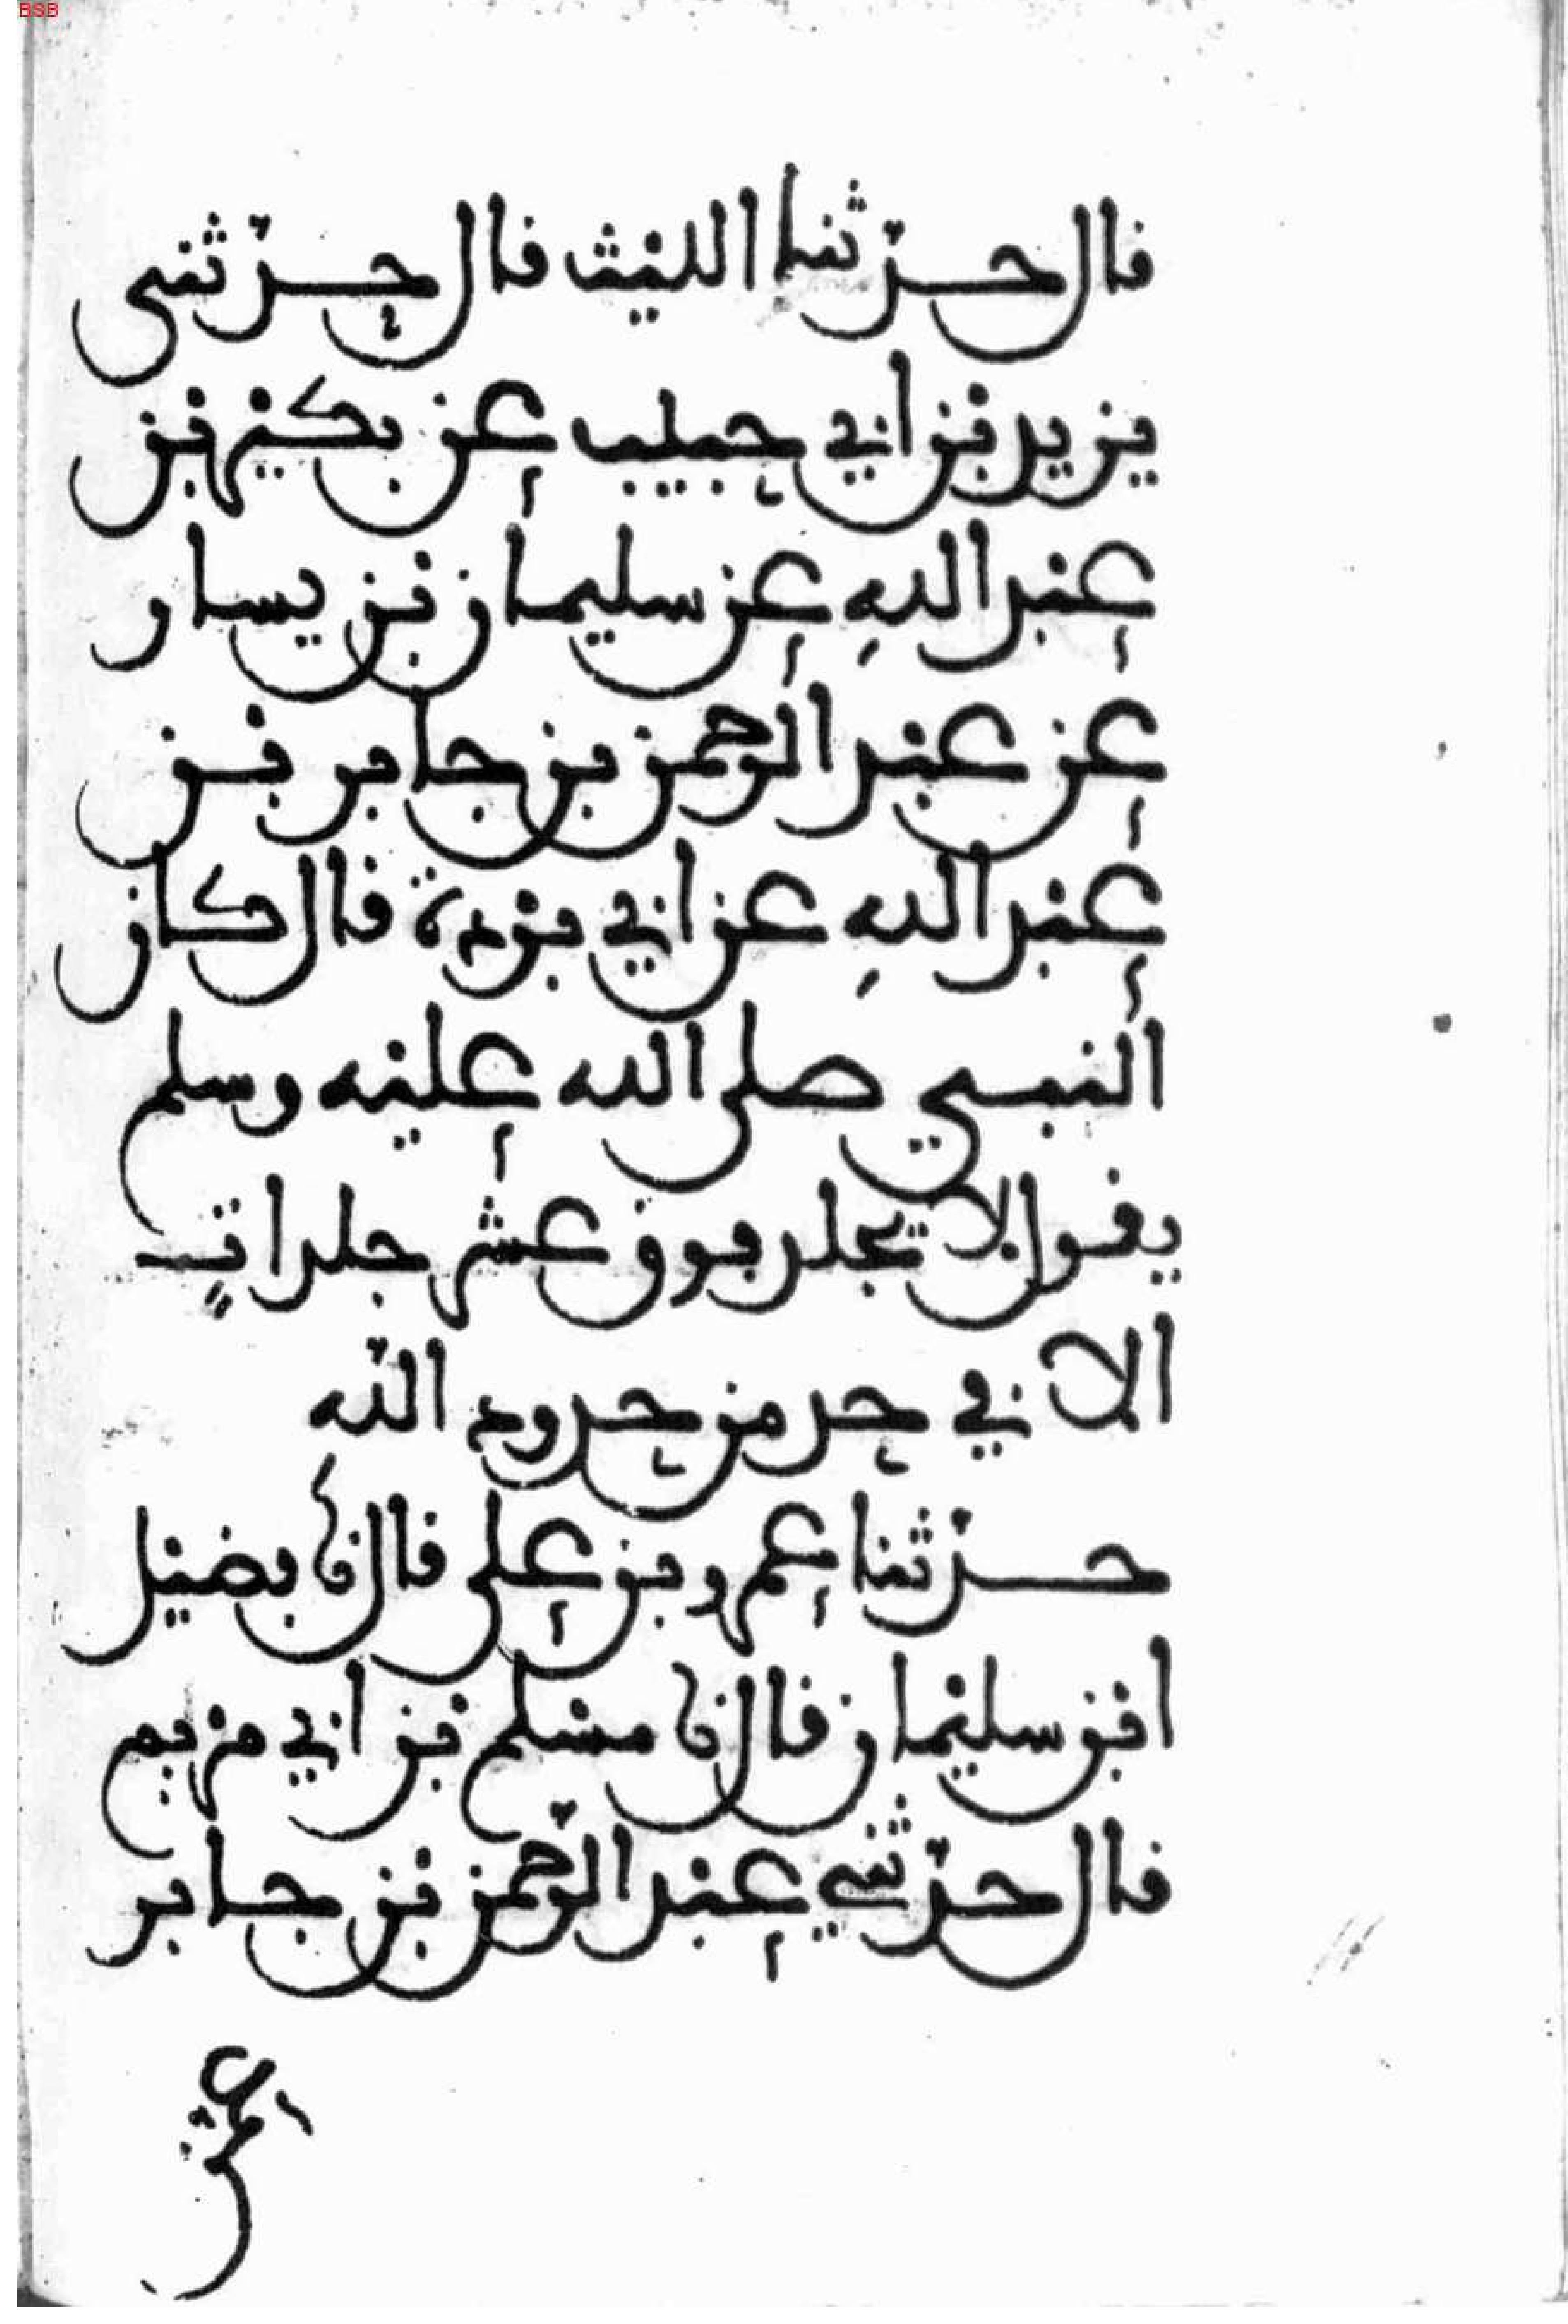 BSB
قال حدّثنا الليث قال حدّثني
يزيد بن ابي حبيب عن بكير بن
عبد اللهِ عن سليمان بن يسار
عن عبد الرحمن بن جابر بن
عبد اللهِ عن ابي بردة قال كان
النبي صلى الله عليه وسلم
يقول لا تجلد فوق عشر جلداتٍ
الا في حد من حدود اللّه
حدّثنا عمرو بن علي قال نا فضيل
ابن سليمان قال نا مسلم بن ابي مريم
قال حدّثني عبد الرّحمن بن جابر
عمن